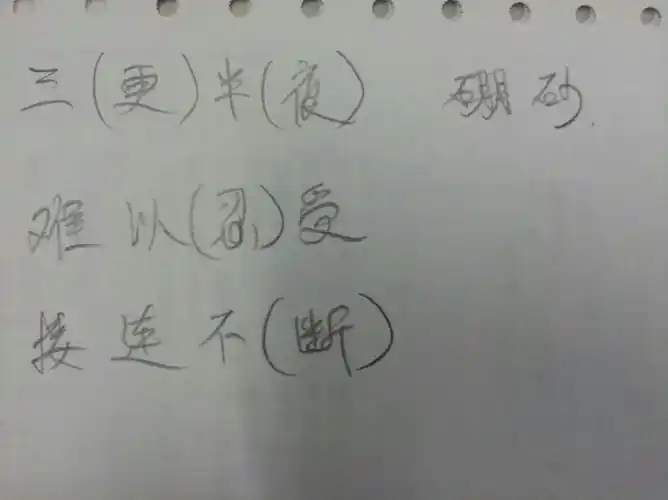 三(更)半(夜) 硼砂.
难以(忍)受
接连不(断)